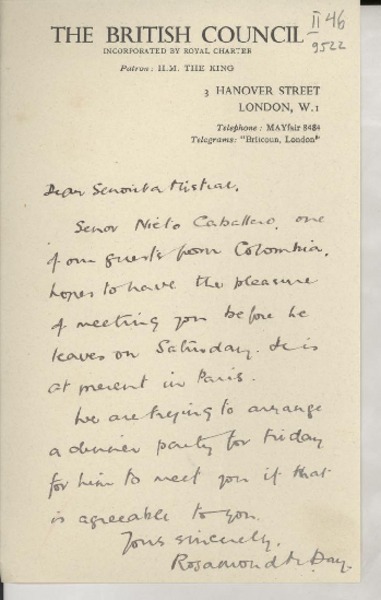 THE BRITISH COUNCIL
INCORPORATED BY ROYAL CHARTER
Patron: H.M. THE KING
II 46
9522
3 HANOVER STREET
LONDON, W.1
Telephone: MAYfair 8484
Telegrams: "Britcoun, London"
Dear Senorita Mistral,
Senor Nieto Caballero, one
of our guests from Colombia,
hopes to have the pleasure
of meeting you before he
leaves on Saturday. He is
at present in Paris.
We are trying to arrange
a dinner party for Friday
for him to meet you if that
is agreeable to you.
Yours sincerely,
Rosamond Day.